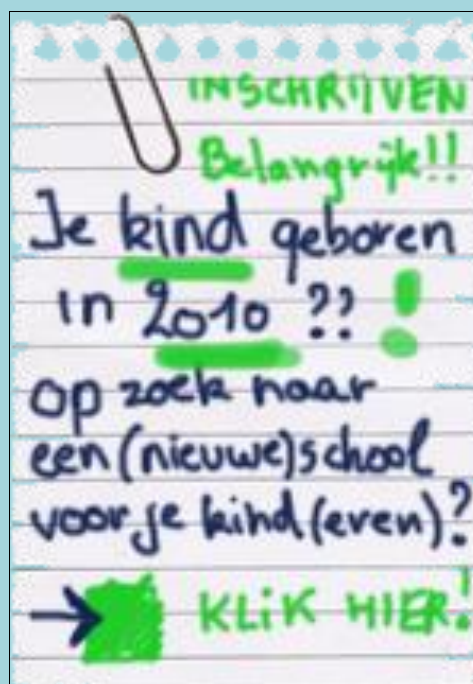 INSCHRIJVEN
Belangrijk!!
Je kind geboren
in 2010 ?? !
op zoek naar
een (nieuwe) school
voor je kind(eren)?
KLIK HIER!